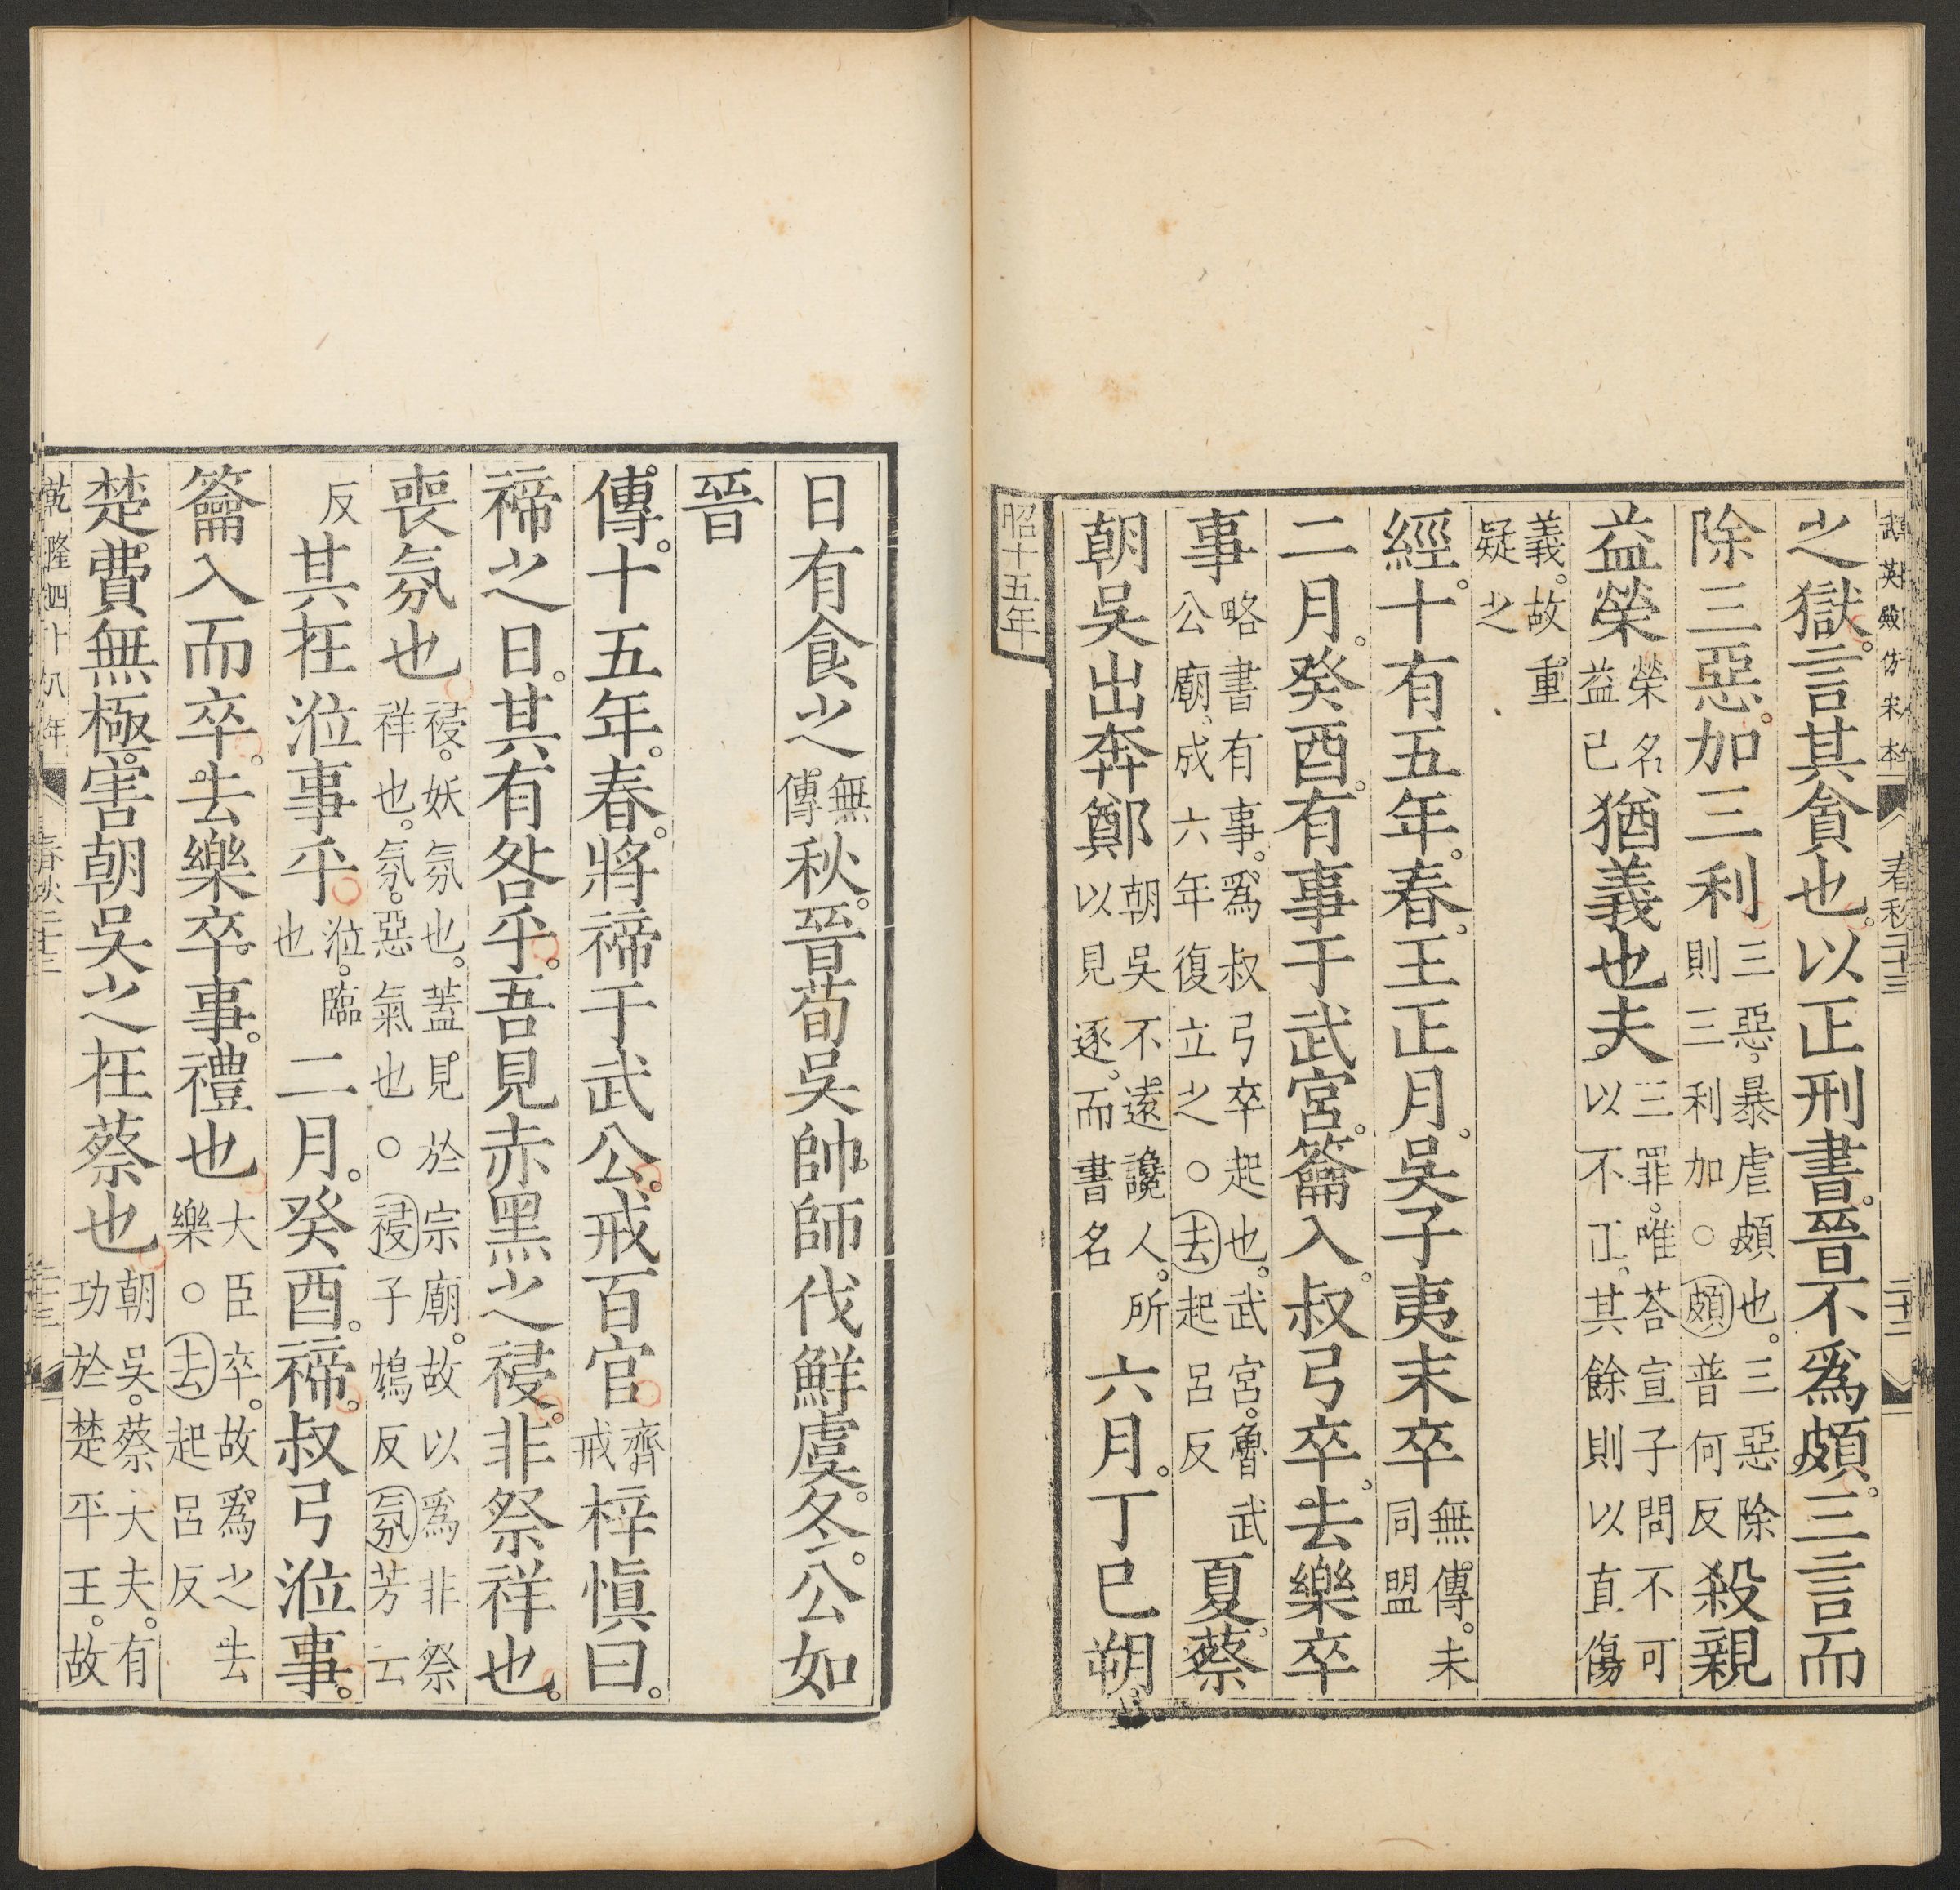 武英殿仿宋本 春秋二十三 二十二
之獄。言其貪也。以正刑書。晉不爲頗。三言而
除三惡。加三利三惡。暴虐頗也。三惡除則三利加○頗普何反殺親
益榮榮名益已猶義也夫。三罪。唯荅宣子問不可以不正。其餘則以直傷
義。故重疑之
經。十有五年。春。王正月。吳子夷末卒無傳。未同盟
二月。癸酉。有事于武宮。籥入。叔弓卒。去樂卒
事略書有事。爲叔弓卒起也。武宮。魯武公廟、成六年復立之。○去起呂反夏。蔡
朝吳出奔鄭朝吳不遠讒人。所以見逐。而書名六月。丁巳朔。
昭十五年
日有食之無傳秋。晉荀吳帥師伐鮮虞。冬。公如
晉
傳。十五年。春。將禘于武公。戒百官齊戒梓愼曰。
禘之日。其有咎乎。吾見赤黑之祲。非祭祥也。
喪氛也祲。妖氛也。蓋見於宗廟。故以爲非祭祥也。氛。惡氣也○祲子鴆反氛芳云
反其在涖事乎涖。臨也二月。癸酉。禘。叔弓涖事。
籥入而卒。去樂卒事。禮也大臣卒。故爲之去樂○去起呂反
楚費無極。害朝吳之在蔡也朝吳。蔡大夫。有功於楚平王。故
乾隆四十八年 春秋二十三 二十三